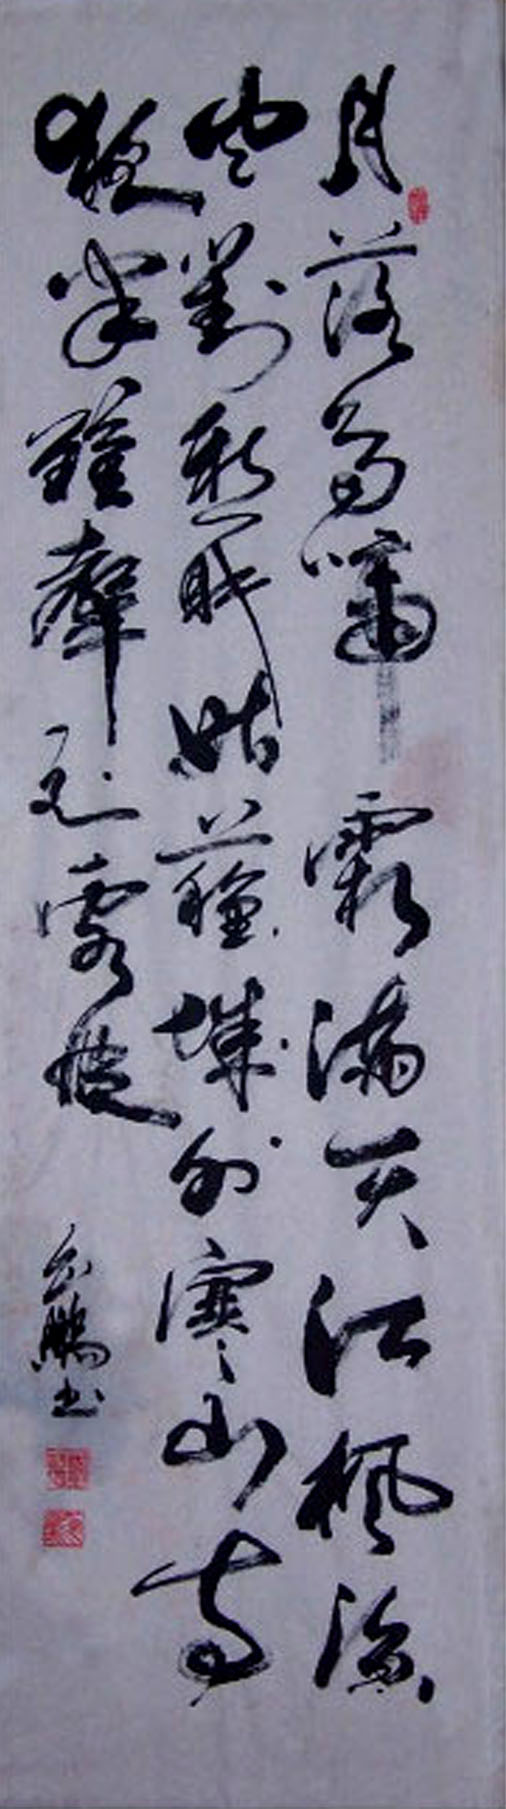 月落烏啼霜滿天江楓漁
火對愁眠姑蘇城外寒山寺
夜半鐘聲到客船
鵬書